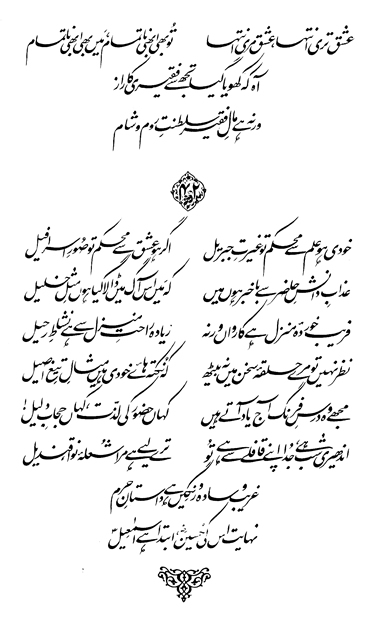 عشق تری انتہا، عشق مری انتہا تُو بھی ابھی ناتمام، مَیں بھی ابھی ناتمام
آہ کہ کھویا گیا تجھ سے فقیری کا راز
ورنہ ہے مالِ فقیر سلطنتِ روم و شام
۴۲
خودی ہو علم سے محکم تو غیرتِ جبریل اگر ہو عشق سے محکم تو صُورِ اسرافیل
عذابِ دانشِ حاضر سے باخبر ہوں مَیں کہ مَیں اس آگ میں ڈالا گیا ہوں مثلِ خلیل
فریب خوردۂ منزل ہے کارواں ورنہ زیادہ راحتِ منزل سے ہے نشاطِ رحیل
نظر نہیں تو مرے حلقۂ سخن میں نہ بیٹھ کہ نکتہ‌ہائے خودی ہیں مثالِ تیغِ اصیل
مجھے وہ درسِ فرنگ آج یاد آتے ہیں کہاں حضور کی لذّت، کہاں حجابِ دلیل!
اندھیری شب ہے، جُدا اپنے قافلے سے ہے تُو ترے لیے ہے مرا شعلۂ نوا قندیل
غریب و سادہ و رنگیں ہے داستانِ حرم
نہایت اس کی حُسینؓ، ابتدا ہے اسمٰعیلؑ